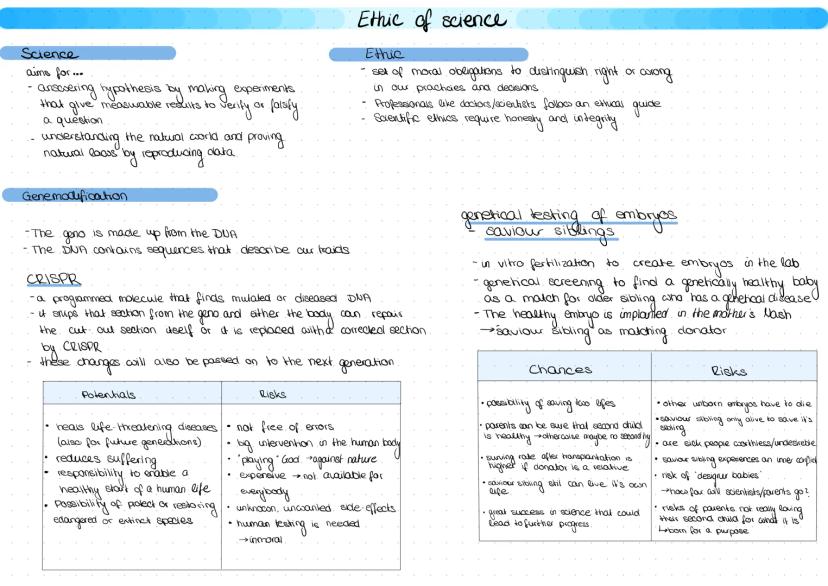 Ethic of science
Science
aims for...
- answering hypothesis by making experiments
that give measurable results to verify or falsify
a question
- understanding the natural world and proving
natural laws by reproducing data
Ethic
- set of moral obligations to distinguish right or wrong
in our practices and decisions
- Professionals like doctors/scientists follow an ethical guide
- Scientific ethics require honesty and integrity
Genemodification
- The geno is made up from the DNA
- The DNA contains sequences that describe our traids
CRISPR
- a programmed molecule that finds mutated or diseased DNA
- it snips that section from the geno and either the body can repair
the cut out section itself or it is replaced with a corrected section
by CRISPR
- these changes will also be passed on to the next generation
Potentials
• heals life-threatening diseases
(also for future generations)
• reduces suffering
• responsibility to enable a
healthy start of a human life
• Possibility of protect or restoring
endangered or extinct species
Risks
• not free of errors
• big intervention in the human body
• "playing" God → against nature
• expensive → not available for
everybody
• unknown, unwanted side-effects
• human testing is needed
→ inmoral
genetical testing of embryos
- saviour siblings
- in vitro fertilization to create embryos in the lab
- genetical screening to find a genetically healthy baby
as a match for older sibling who has a genetical disease
- The healthy embryo is implanted in the mother's
→ saviour sibling as matching donator
Chances
• possibility of saving two lifes
• parents can be sure that second child
is healthy → otherwise maybe no second try
• surving rate after transplantation is
higher if donator is a relative
• saviour sibling still can live it's own
life
• great success in science that could
lead to further progress
Risks
• other unborn embryos have to die
• saviour sibling only alive to save it's
sibling
• are sick people worthless/undesirable
• saviour sibling experiences an inner conflict
• risk of 'designer babies'
→ how far will scientists/parents go?
• risks of parents not really loving
their second child for what it is
↳ born for a purpose